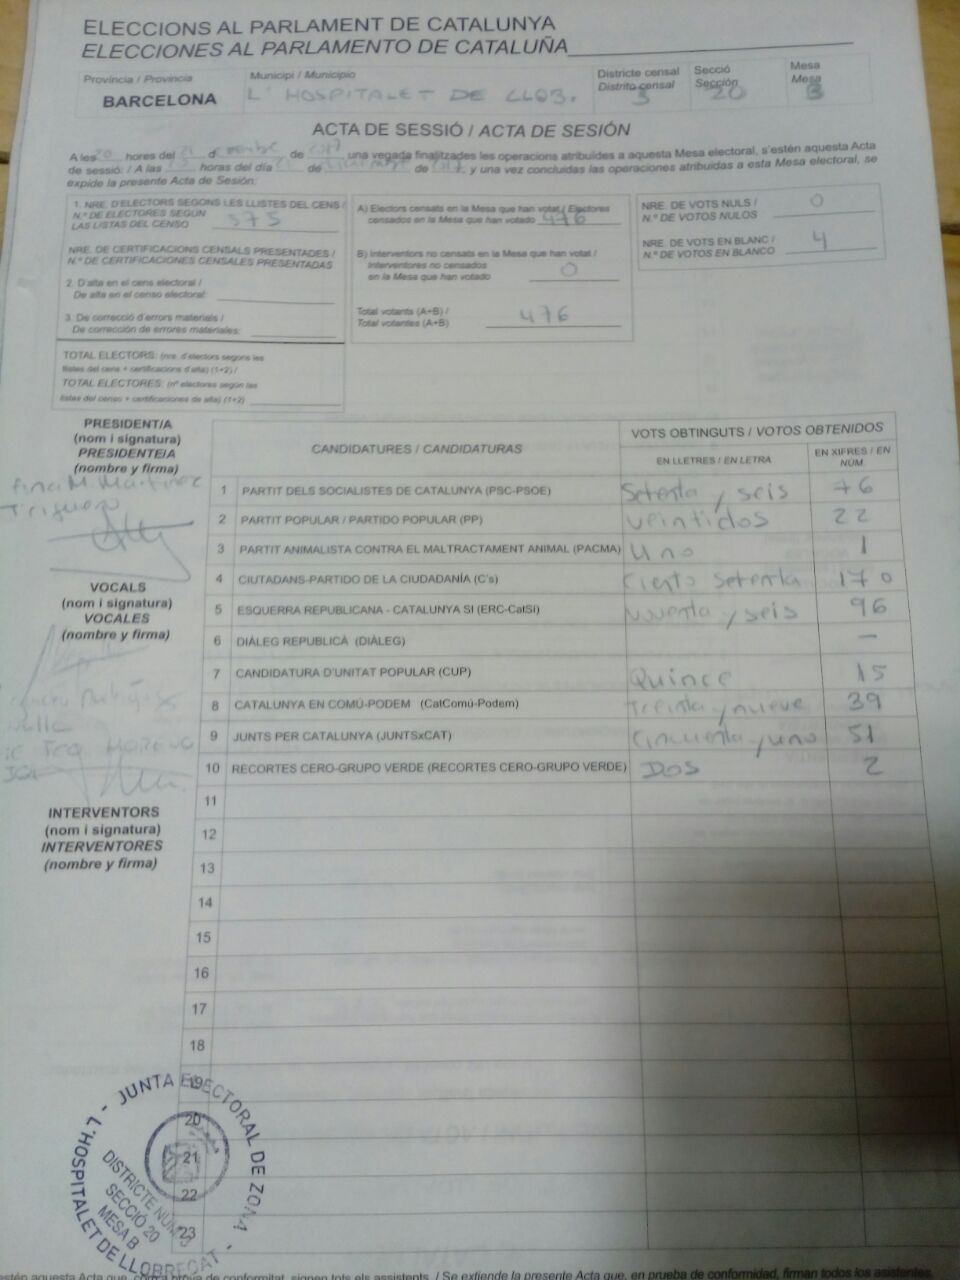 ELECCIONS AL PARLAMENT DE CATALUNYA
ELECCIONES AL PARLAMENTO DE CATALUÑA
Província / Provincia
BARCELONA
Municipi / Municipio
L'HOSPITALET DE LLOB.
Districte censal
Distrito censal
3
Secció
Sección
20
Mesa
Mesa
B
ACTA DE SESSIÓ / ACTA DE SESIÓN
A les 20 hores del 21 de de 2017 una vegada finalitzades les operacions atribuïdes a aquesta Mesa electoral, s'estén aquesta Acta
de sessió: / A las hores del día 21 de de 2017 y una vez concluidas las operaciones atribuidas a esta Mesa electoral, se
expide la presente Acta de Sesión:
1. NRE. D'ELECTORS SEGONS LES LLISTES DEL CENS /
N.º DE ELECTORES SEGÚN
LAS LISTAS DEL CENSO 575
NRE. DE CERTIFICACIONS CENSALS PRESENTADES /
N.º DE CERTIFICACIONES CENSALES PRESENTADAS
2. D'alta en el cens electoral /
De alta en el censo electoral:
3. De correcció d'errors materials /
De corrección de errores materiales:
TOTAL ELECTORS: (nre. d'electors segons les
llistes del cens + certificacions d'alta) (1+2) /
TOTAL ELECTORES: (nº electores según las
listas del censo + certificaciones de alta) (1+2)
A) Electors censats en la Mesa que han votat / Electores
censados en la Mesa que han votado 476
B) Interventors no censats en la Mesa que han votat /
Interventores no censados
en la Mesa que han votado 0
Total votants (A+B) /
Total votantes (A+B) 476
NRE. DE VOTS NULS /
N.º DE VOTOS NULOS 0
NRE. DE VOTS EN BLANC /
N.º DE VOTOS EN BLANCO 4
PRESIDENT/A
(nom i signatura)
PRESIDENTE/A
(nombre y firma)
VOCALS
(nom i signatura)
VOCALES
(nombre y firma)
INTERVENTORS
(nom i signatura)
INTERVENTORES
(nombre y firma)
CANDIDATURES / CANDIDATURAS
VOTS OBTINGUTS / VOTOS OBTENIDOS
EN LLETRES / EN LETRA
EN XIFRES / EN NÚM.
1 PARTIT DELS SOCIALISTES DE CATALUNYA (PSC-PSOE) Setenta y seis 76
2 PARTIT POPULAR / PARTIDO POPULAR (PP) veintidos 22
3 PARTIT ANIMALISTA CONTRA EL MALTRACTAMENT ANIMAL (PACMA) Uno 1
4 CIUTADANS-PARTIDO DE LA CIUDADANÍA (C's) Ciento Setenta 170
5 ESQUERRA REPUBLICANA - CATALUNYA SÍ (ERC-CatSí) Noventa y seis 96
6 DIÀLEG REPUBLICÀ (DIÀLEG) —
7 CANDIDATURA D'UNITAT POPULAR (CUP) Quince 15
8 CATALUNYA EN COMÚ-PODEM (CatComú-Podem) Treinta y nueve 39
9 JUNTS PER CATALUNYA (JUNTSxCAT) Cincuenta y uno 51
10 RECORTES CERO-GRUPO VERDE (RECORTES CERO-GRUPO VERDE) DOS 2
11
12
13
14
15
16
17
18
19
20
21
22
23
JUNTA ELECTORAL DE ZONA - L'HOSPITALET DE LLOBREGAT -
DISTRICTE NÚM. 3
SECCIÓ 20
MESA B
estén aquesta Acta que, com a prova de conformitat, signen tots els assistents. / Se extiende la presente Acta que, en prueba de conformidad, firman todos los asistentes.